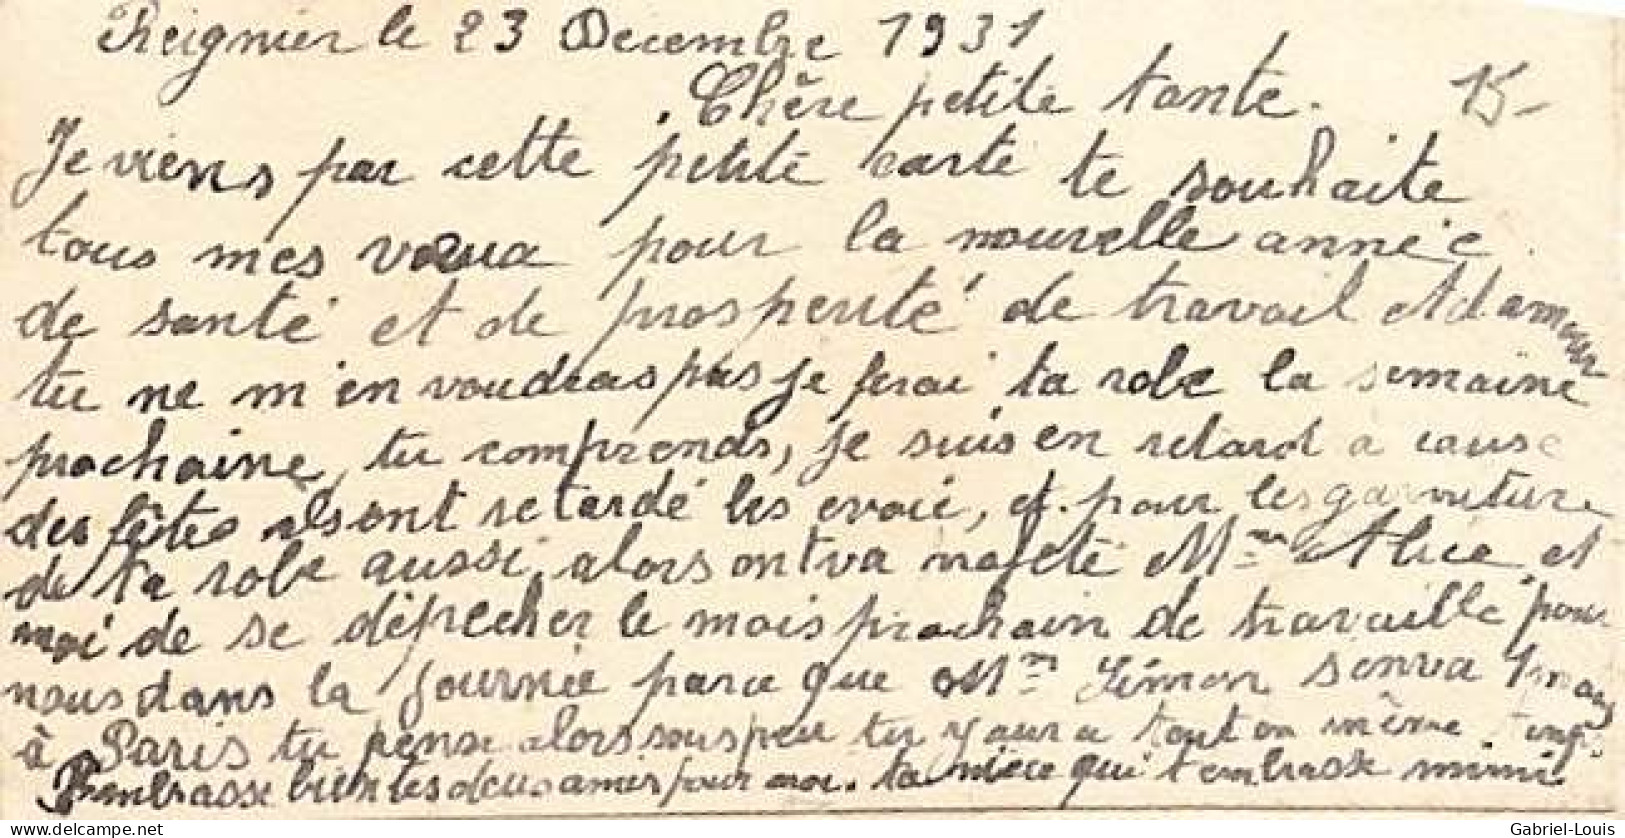 Reignier le 23 Decembre 1931
Chère petite tante. 15-
Je viens par cette petite carte te souhaite
tous mes vœux pour la nouvelle année
de santé et de prosperité de travail et d'amour
tu ne m'en voudras pas je ferai ta robe la semaine
prochaine, tu comprends, je suis en retard a cause
des fêtes ils ont retardé les et pour les garniture
de ta robe aussi, alors ont va Mme Alice et
moi de se dépecher le mois prochain de travaille pour
nous dans la journée parce que Mm Simon senva 1 mois
à Paris tu pense alors sous peu tu y aura tout en même temp.
Embrasse bien tes deus amies pour moi. ta nièce qui t'embrasse mimi
Gabriel-Louis
delcampe.net